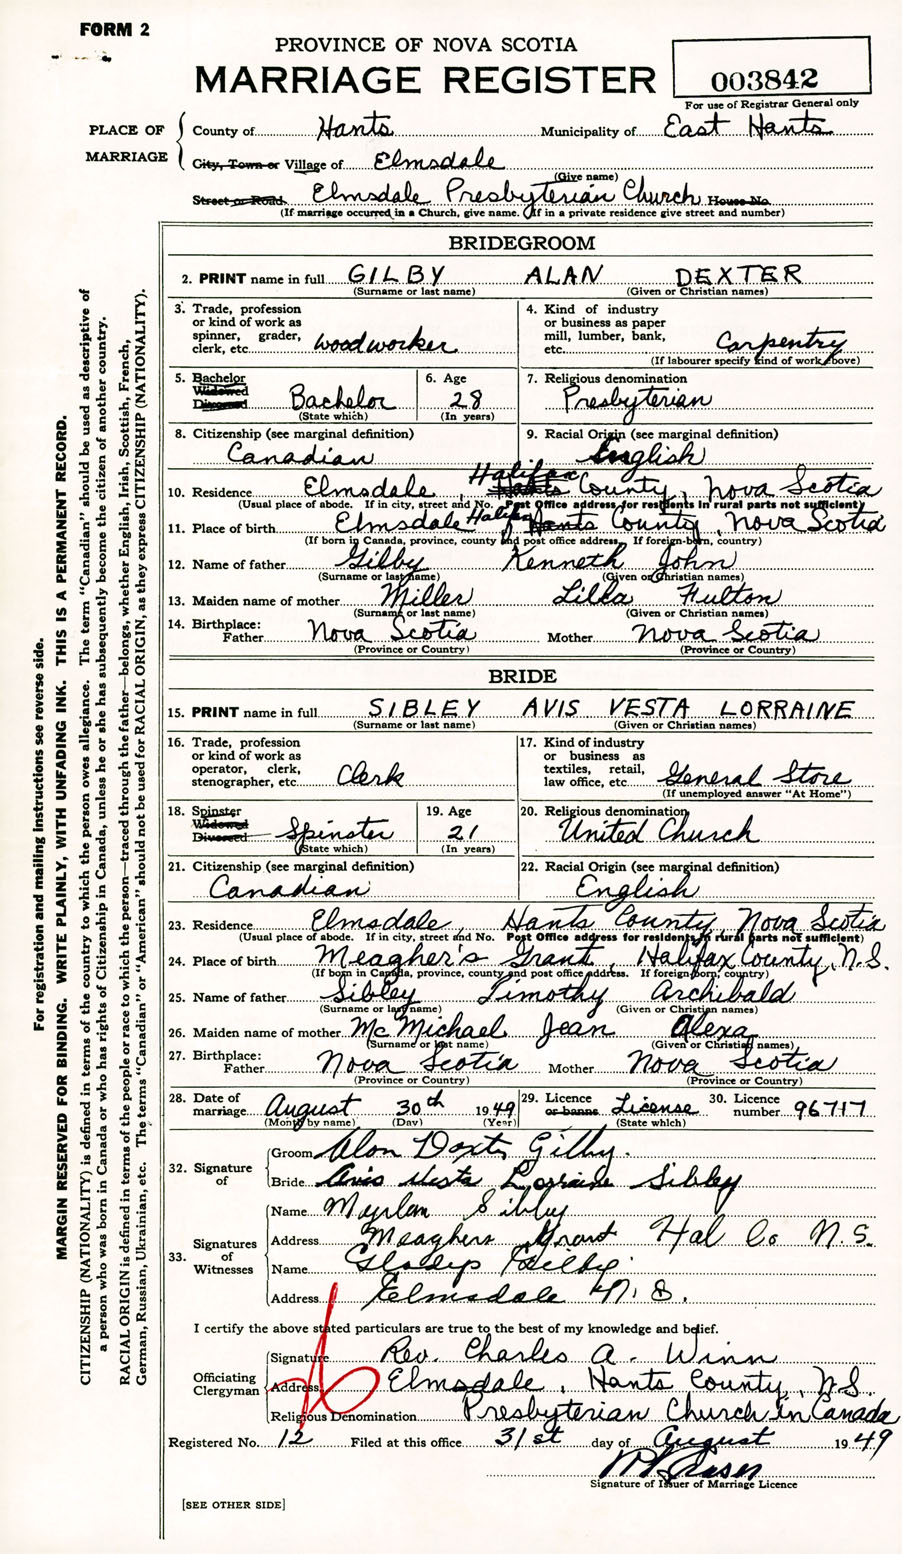 FORM 2
PROVINCE OF NOVA SCOTIA
MARRIAGE REGISTER
003842
For use of Registrar General only
PLACE OF MARRIAGE
County of Hants Municipality of East Hants
City, Town or Village of Elmsdale
(Give name)
Street or Road Elmsdale Presbyterian Church House No.
(If marriage occurred in a Church, give name. If in a private residence give street and number)
BRIDEGROOM
2. PRINT name in full GILBY ALAN DEXTER
(Surname or last name) (Given or Christian names)
3. Trade, profession or kind of work as spinner, grader, clerk, etc. woodworker
4. Kind of industry or business as paper mill, lumber, bank, etc. Carpentry
(If labourer specify kind of work above)
5. Bachelor Widowed Divorced Bachelor
(State which)
6. Age 28
(In years)
7. Religious denomination Presbyterian
8. Citizenship (see marginal definition) Canadian
9. Racial Origin (see marginal definition) English
10. Residence Elmsdale, Halifax Hants County, Nova Scotia
(Usual place of abode. If in city, street and No. Post Office address for residents in rural parts not sufficient)
11. Place of birth Elmsdale Halifax Hants County, Nova Scotia
(If born in Canada, province, county and post office address. If foreign-born, country)
12. Name of father Gilby Kenneth John
(Surname or last name) (Given or Christian names)
13. Maiden name of mother Miller Lilla Fulton
(Surname or last name) (Given or Christian names)
14. Birthplace: Father Nova Scotia Mother Nova Scotia
(Province or Country) (Province or Country)
BRIDE
15. PRINT name in full SIBLEY AVIS VESTA LORRAINE
(Surname or last name) (Given or Christian names)
16. Trade, profession or kind of work as operator, clerk, stenographer, etc. Clerk
17. Kind of industry or business as textiles, retail, law office, etc. General Store
(If unemployed answer "At Home")
18. Spinster Widowed Divorced Spinster
(State which)
19. Age 21
(In years)
20. Religious denomination United Church
21. Citizenship (see marginal definition) Canadian
22. Racial Origin (see marginal definition) English
23. Residence Elmsdale, Hants County, Nova Scotia
(Usual place of abode. If in city, street and No. Post Office address for residents in rural parts not sufficient)
24. Place of birth Meagher's Grant, Halifax County, N.S.
(If born in Canada, province, county and post office address. If foreign born, country)
25. Name of father Sibley Timothy Archibald
(Surname or last name) (Given or Christian names)
26. Maiden name of mother McMichael Jean Alexa
(Surname or last name) (Given or Christian names)
27. Birthplace: Father Nova Scotia Mother Nova Scotia
(Province or Country) (Province or Country)
28. Date of marriage August 30th 1949
(Month by name) (Day) (Year)
29. Licence or banns License
(State which)
30. Licence number 96717
32. Signature of
Groom Alan Dexter Gilby.
Bride Avis Vesta Lorraine Sibley
33. Signatures of Witnesses
Name Sibley
Address Meaghers Grant Hal Co N.S.
Name Gladys Gilby.
Address Elmsdale N.S.
I certify the above stated particulars are true to the best of my knowledge and belief.
Officiating Clergyman
Signature Rev. Charles A. Winn
Address Elmsdale, Hants County, N.S.
Religious Denomination Presbyterian Church in Canada
Registered No. 12 Filed at this office 31st day of August 1949
Signature of Issuer of Marriage Licence
[SEE OTHER SIDE]
For registration and mailing instructions see reverse side.
MARGIN RESERVED FOR BINDING. WRITE PLAINLY, WITH UNFADING INK. THIS IS A PERMANENT RECORD.
CITIZENSHIP (NATIONALITY) is defined in terms of the country to which the person owes allegiance. The term "Canadian" should be used as descriptive of
a person who was born in Canada or who has rights of Citizenship in Canada, unless he or she has subsequently become the citizen of another country.
RACIAL ORIGIN is defined in terms of the people or race to which the person—traced through the father—belongs, whether English, Irish, Scottish, French,
German, Russian, Ukrainian, etc. The terms "Canadian" or "American" should not be used for RACIAL ORIGIN, as they express CITIZENSHIP (NATIONALITY).